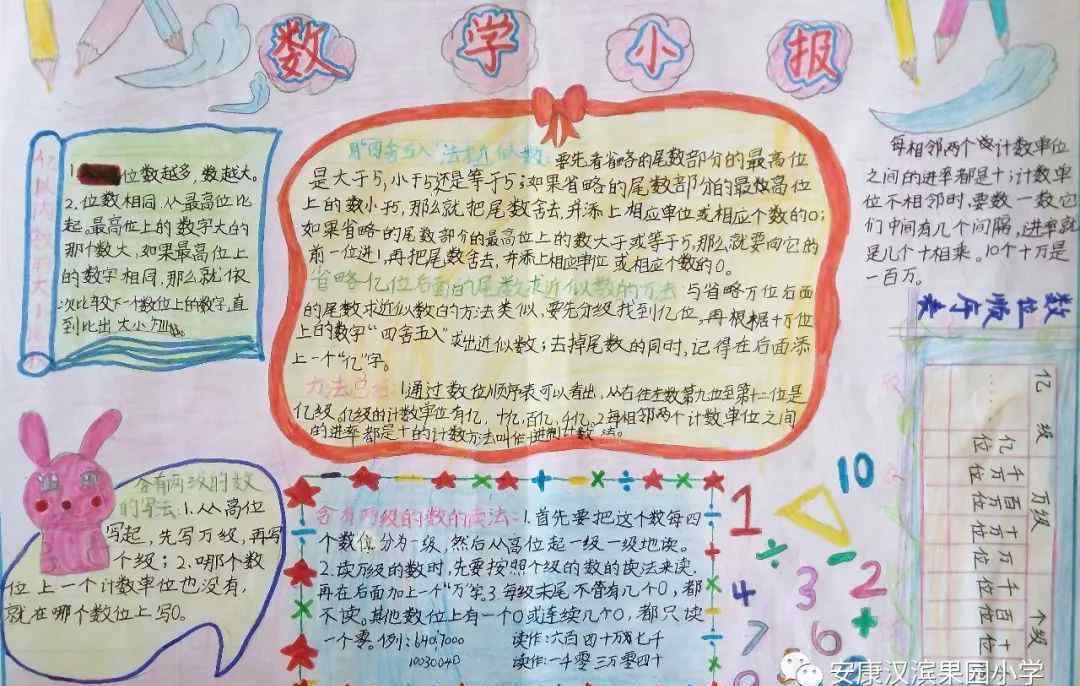 数学小报
亿以内数的大小
1.位数越多,数越大。
2.位数相同,从最高位比
起。最高位上的数字大的
那个数大,如果最高位上
的数字相同,那么就依
次比较下一个数位上的数字,直
到比出大小为止。
用“四舍五入”法求近似数:要先看省略的尾数部分的最高位
是大于5,小于5还是等于5;如果省略的尾数部分的最高位
上的数小于5,那么就把尾数舍去,并添上相应单位或相应个数的0;
如果省略的尾数部分的最高位上的数大于或等于5,那么就要向它的
前一位进1,再把尾数舍去,并添上相应单位或相应个数的0。
省略亿位后面的尾数求近似数的方法与省略万位后面
的尾数求近似数的方法类似,要先分级找到亿位,再根据千万位
上的数字“四舍五入”求出近似数;去掉尾数的同时,记得在后面添
上一个“亿”字。
方法总结:1通过数位顺序表可以看出,从右往左数第九位至第十二位是
亿级。亿级的计数单位有亿,十亿,百亿,千亿。2每相邻两个计数单位之间
的进率都是十的计数方法叫作十进制计数法。
每相邻两个计数单位
之间的进率都是十;计数单
位不相邻时,要数一数它
们中间有几个间隔,进率就
是几个十相乘。10个十万是
一百万。
数位顺序表
亿级 万级 个级
…
亿位
千万位
百万位
十万位
万位
千位
百位
十位
含有两级的数
的写法:1.从高位
写起,先写万级,再写
个级;2.哪个数
位上一个计数单位也没有,
就在哪个数位上写0。
含有两级的数的读法:1.首先要把这个数每四
个数位分为一级,然后从高位起一级一级地读。
2.读万级的数时,先要按照个级的数的读法来读,
再在后面加上一个“万”字。3.每级末尾不管有几个0,都
不读。其他数位上有一个0或连续几个0,都只读
一个零。例:6407000 读作:六百四十万七千
10030040 读作:一千零三万零四十
10
1
÷
2
4
3
+
7
6
安康汉滨果园小学